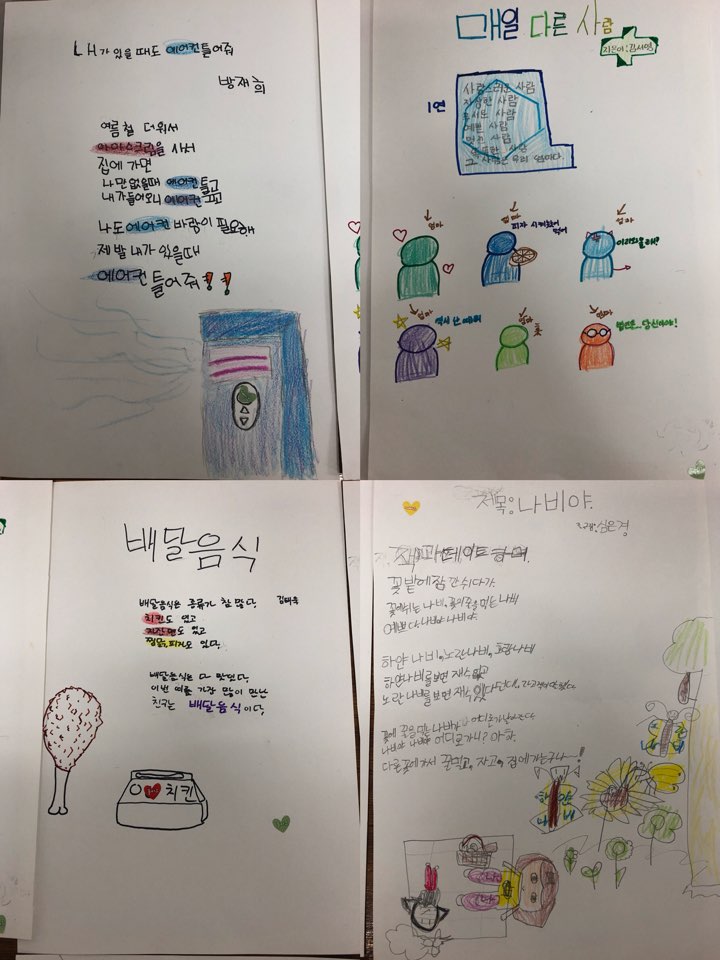 내가 있을 때도 에어컨틀어줘
방재희
여름철 더워서
아이스크림을 사서
집에 가면
나만 없을때 에어컨 틀고
내가들어오니 에어컨 끄고
나도 에어컨 바람이 필요해
제발 내가 있을때
에어컨 틀어줘!!
매일 다른 사람
지은이:김서영
1연
사랑스러운 사람
자상한 사람
예쁜 사람
멋진 사람
그 사람은 우리 엄마다.
엄마
엄마
피자 시켜놨어
먹어
엄마
이리와올래?
엄마
역시 난 예뻐
엄마
엄마
배달음식
배달음식은 종류가 참 많다.
김태욱
치킨도 있고
자장면도 있고
찜닭도,피자도 있다.
배달음식은 다 맛있다.
이번 여름 가장 많이 만난
친구는 배달음식이다.
치킨
제목:나비야.
심은경
꽃밭에잠 간쉬다가.
꽃에쉬는 나비,꽃의꿀을 먹는 나비
예쁘다.나비야 나비야.
하얀 나비,노란나비,호랑나비
하얀나비를보면 재수 없고
노란 나비를 보면 재수 있다
꽃에 꿀을먹는 나비가 어디론가날아간다
나비야 나비야 어디로가니? 아하.
다른꽃에가서 꿀먹고, 자고, 집에가는구나~!
하얀
나비